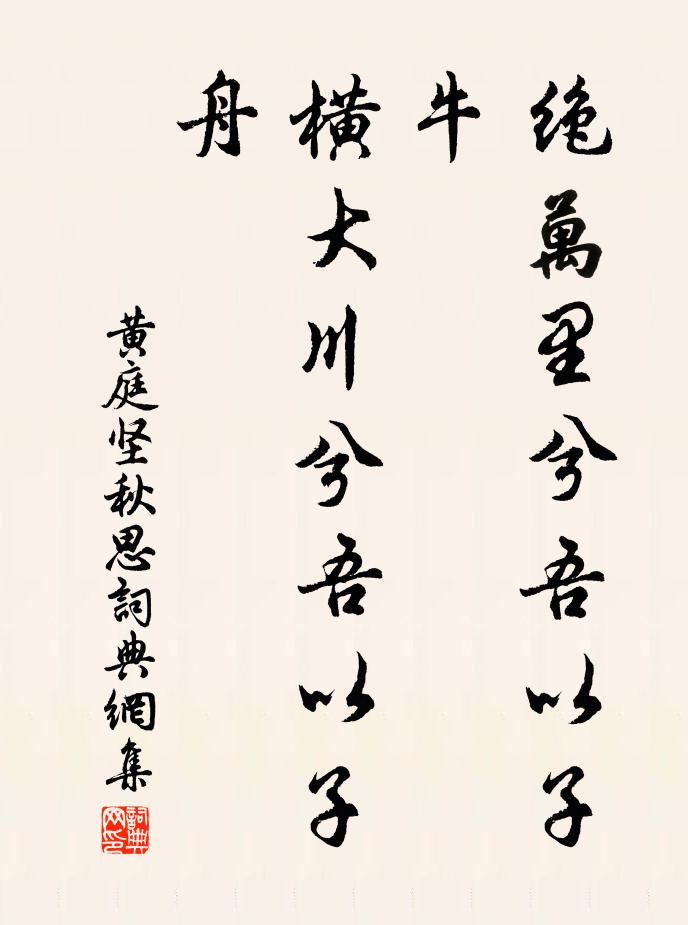 绝萬里兮吾以子
牛
横大川兮吾以子
舟
黄庭坚秋思詞典網集
詞典
网印